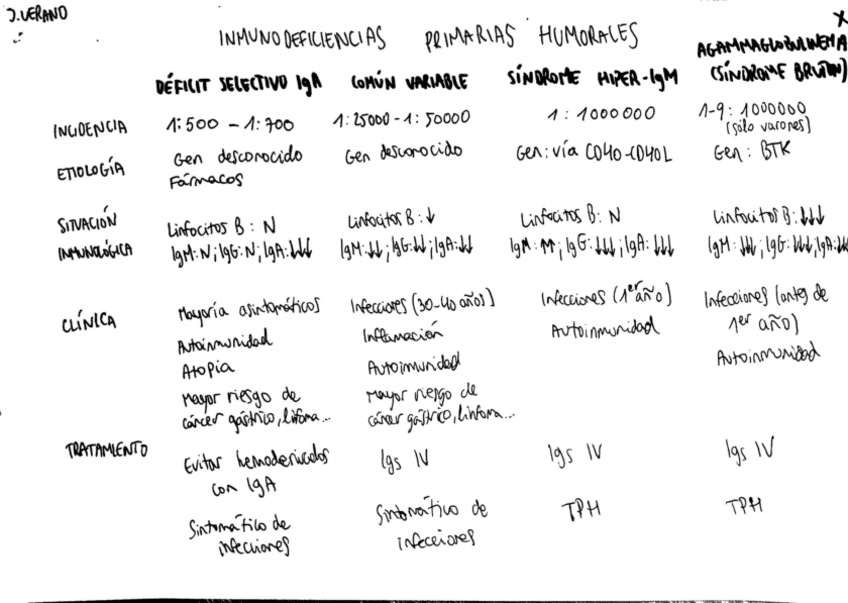 J. VERANO
INMUNODEFICIENCIAS PRIMARIAS HUMORALES
X
DÉFICIT SELECTIVO IgA COMÚN VARIABLE SÍNDROME HIPER-IgM AGAMMAGLOBULINEMIA
(SÍNDROME BRUTON)
INCIDENCIA 1:500 - 1:700 1:25000 - 1:50000 1:1000000 1-9:1000000
(sólo varones)
ETIOLOGÍA Gen desconocido Gen desconocido Gen: vía CD40-CD40L Gen: BTK
Fármacos
SITUACIÓN Linfocitos B: N Linfocitos B: ↓ Linfocitos B: N Linfocitos B: ↓↓↓
INMUNOLÓGICA IgM: N; IgG: N; IgA: ↓↓↓ IgM: ↓↓; IgG: ↓↓; IgA: ↓↓ IgM: ↑↑; IgG: ↓↓↓; IgA: ↓↓↓ IgM: ↓↓↓; IgG: ↓↓↓; IgA: ↓↓↓
CLÍNICA Mayoría asintomáticos Infecciones (30-40 años) Infecciones (1er año) Infecciones (antes de
1er año)
Autoinmunidad Inflamación Autoinmunidad Autoinmunidad
Atopia Autoinmunidad
Mayor riesgo de Mayor riesgo de
cáncer gástrico, linfoma... cáncer gástrico, linfoma...
TRATAMIENTO Evitar hemoderivados Igs IV Igs IV Igs IV
con IgA
Sintomático de Sintomático de TPH TPH
infecciones infecciones